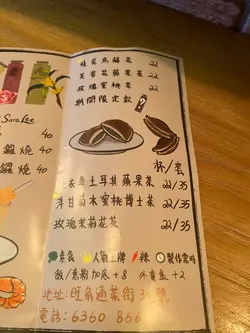 桂花烏龍茶 22
22
玫瑰蜜桃茶 22
期間限定飲
Sara Lee
40
鑼燒 40
鑼燒 40
杯/壺
土耳其蘋果茶 22/35
洋甘菊木蜜桃博士茶 22/35
玫瑰茉莉花茶 22/35
素食 人氣王牌 辣 製作需時
飯/意粉加底+8 外賣盒+2
地址:旺角通菜街3 號
電話:6360 866